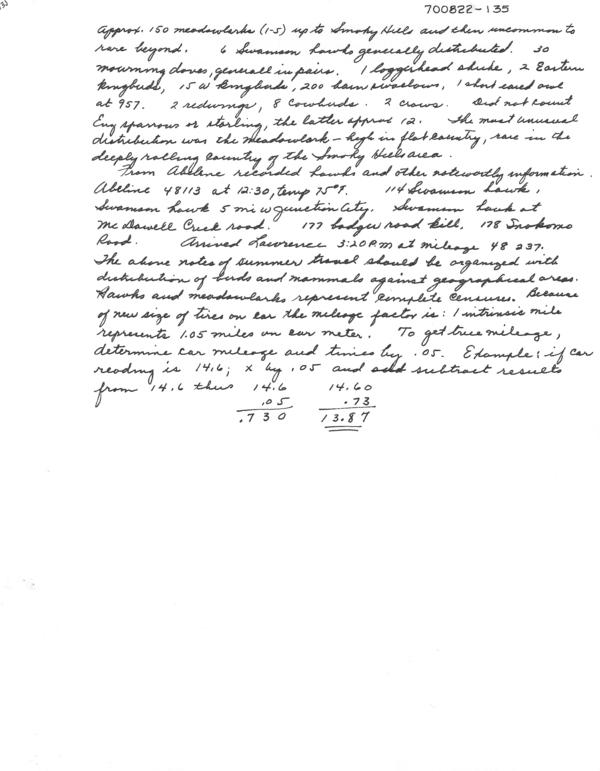 700822-135
Approx. 150 meadowlarks (1-5) up to Smoky Hills and then uncommon to
rare beyond. 6 Swainson hawks generally distributed. 30
mourning doves, generall in pairs. 1 loggerhead shrike, 2 Eastern
Kingbirds, 15 W Kingbirds, 200 barn swallows, 1 short eared owl
at 957. 2 redwings, 8 Cowbirds. 2 crows. Did not count
Eng sparrows or starling, the latter approx 12. The most unusual
distribution was the meadowlark - high in flat country, rare in the
deeply rolling country of the Smoky Hills area.
From Abilene recorded hawks and other noteworthy information.
Abilene 48113 at 12:30, temp 75°F. 114 Swainson hawk,
Swainson hawk 5 mi w Junction City. Swainson hawk at
McDowell Creek road. 177 badger road kill, 178 Snokomo
Road. Arrived Lawrence 3:20 PM at mileage 48 237.
The above notes of summer travel should be organized with
distribution of birds and mammals against geographical areas.
Hawks and meadowlarks represent complete censuses. Because
of new size of tires on car the mileage factor is: 1 intrinsic mile
represents 1.05 miles on car meter. To get true mileage,
determine car mileage and times by .05. Example: if car
reading is 14.6; x by .05 and subtract results
from 14.6 thus 14.6 14.60
.05 .73
.730 13.87